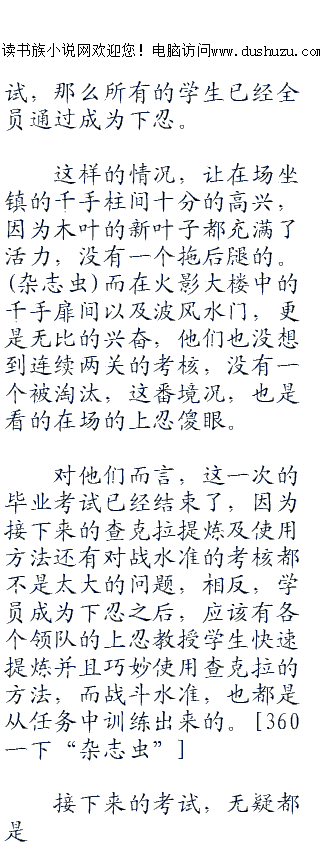 读书族小说网欢迎您！电脑访问www.dushuzu.com
试，那么所有的学生已经全
员通过成为下忍。
这样的情况，让在场坐
镇的千手柱间十分的高兴，
因为木叶的新叶子都充满了
活力，没有一个拖后腿的。
(杂志虫)而在火影大楼中的
千手扉间以及波风水门，更
是无比的兴奋，他们也没想
到连续两关的考核，没有一
个被淘汰，这番境况，也是
看的在场的上忍傻眼。
对他们而言，这一次的
毕业考试已经结束了，因为
接下来的查克拉提炼及使用
方法还有对战水准的考核都
不是太大的问题，相反，学
员成为下忍之后，应该有各
个领队的上忍教授学生快速
提炼并且巧妙使用查克拉的
方法，而战斗水准，也都是
从任务中训练出来的。[360
一下“杂志虫”]
接下来的考试，无疑都
是